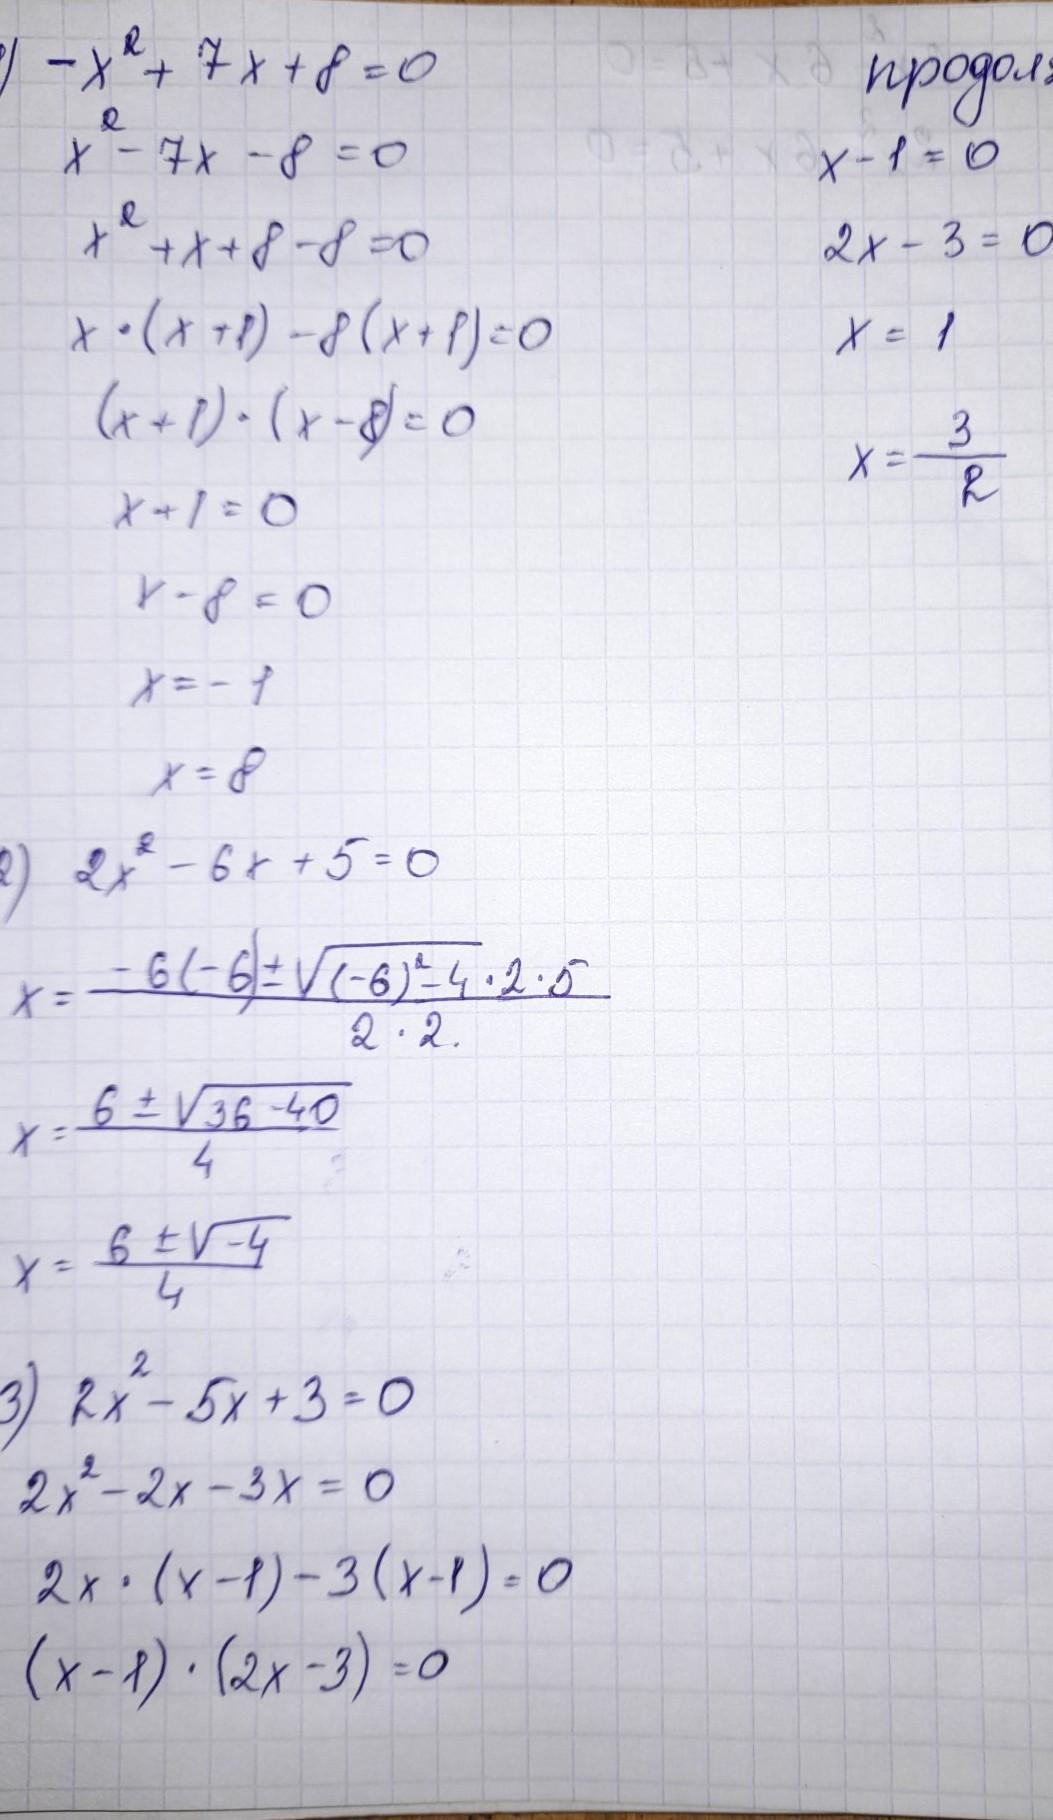 1) -x² + 7x + 8 = 0
x² - 7x - 8 = 0
x² + x + 8 - 8 = 0
x · (x + 1) - 8 (x + 1) = 0
(x + 1) · (x - 8) = 0
x + 1 = 0
x - 8 = 0
x = - 1
x = 8
2) 2x² - 6x + 5 = 0
x = \frac{-6(-6) ± \sqrt{(-6)² - 4} · 2 · 5}{2 · 2.}
x = \frac{6 ± \sqrt{36 - 40}}{4}
x = \frac{6 ± \sqrt{-4}}{4}
3) 2x² - 5x + 3 = 0
2x² - 2x - 3x = 0
2x · (x - 1) - 3 (x - 1) = 0
(x - 1) · (2x - 3) = 0
продол
x - 1 = 0
2x - 3 = 0
x = 1
x = \frac{3}{2}